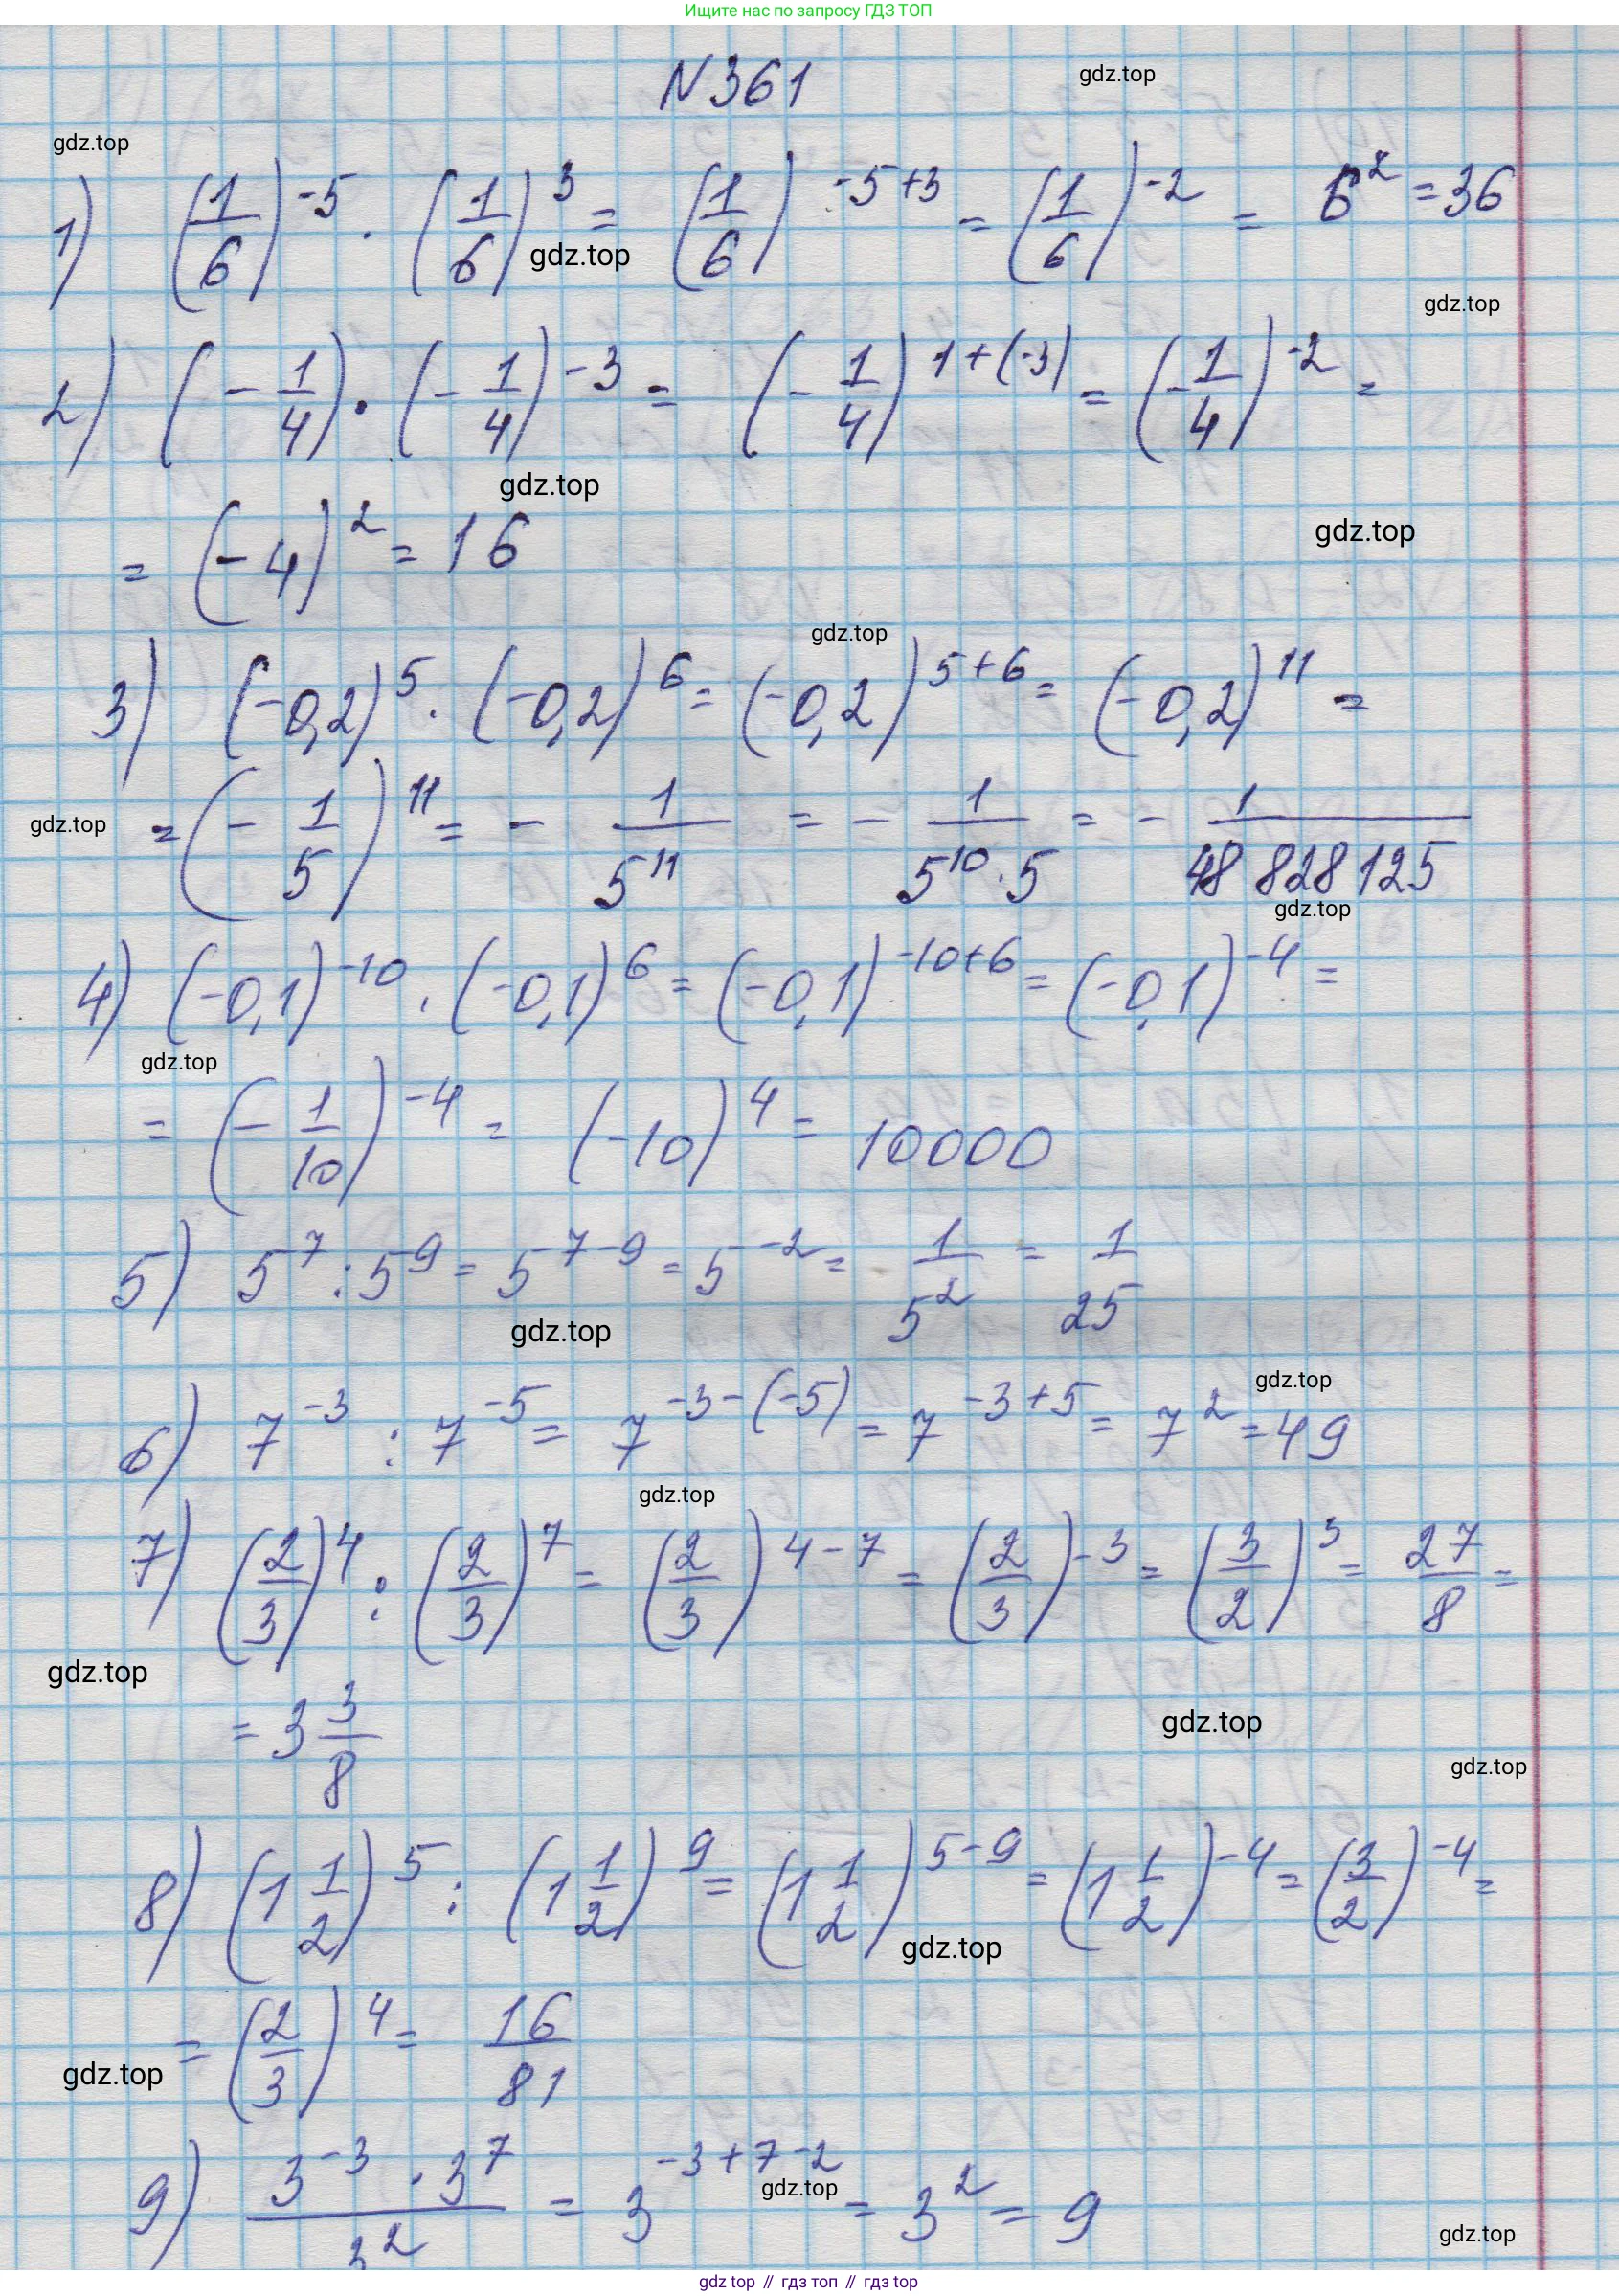 Ищите нас по запросу ГДЗ ТОП
N361
gdz.top
gdz.top
1) (1/6)^-5 · (1/6)^3 = (1/6)^-5+3 = (1/6)^-2 = 6^2 = 36
gdz.top
gdz.top
2) (-1/4) · (-1/4)^-3 = (-1/4)^1+(-3) = (-1/4)^-2 =
gdz.top
= (-4)^2 = 16
gdz.top
gdz.top
3) (-0,2)^5 · (-0,2)^6 = (-0,2)^5+6 = (-0,2)^11 =
gdz.top
= (-1/5)^11 = - 1/5^11 = - 1/5^10·5 = - 1/48 828 125
gdz.top
4) (-0,1)^-10 · (-0,1)^6 = (-0,1)^-10+6 = (-0,1)^-4 =
gdz.top
= (-1/10)^-4 = (-10)^4 = 10000
5) 5^7 : 5^9 = 5^7-9 = 5^-2 = 1/5^2 = 1/25
gdz.top
gdz.top
6) 7^-3 : 7^-5 = 7^-3-(-5) = 7^-3+5 = 7^2 = 49
gdz.top
7) (2/3)^4 : (2/3)^7 = (2/3)^4-7 = (2/3)^-3 = (3/2)^3 = 27/8 =
gdz.top
= 3 3/8
gdz.top
gdz.top
8) (1 1/2)^5 : (1 1/2)^9 = (1 1/2)^5-9 = (1 1/2)^-4 = (3/2)^-4 =
gdz.top
= (2/3)^4 = 16/81
gdz.top
9) 3^-3 · 3^7/3^2 = 3^-3+7-2 = 3^2 = 9
gdz.top
gdz.top
gdz top // гдз топ // гдз top